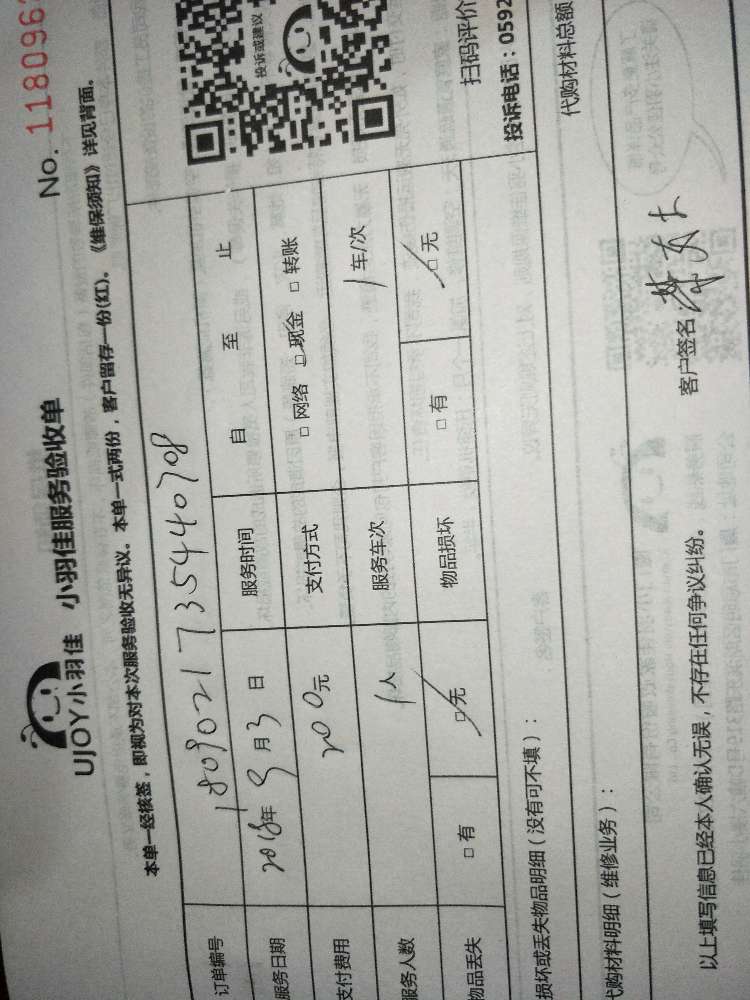 No. 118096
UJOY小羽佳 小羽佳服务验收单
本单一经核签，即视为对本次服务验收无异议。本单一式两份，客户留存一份(红)。《维保须知》详见背面。
订单编号 1809021735440708
服务日期 2018年9月3日 服务时间 自 至 止
支付费用 200元 支付方式 □ 网络 □ 现金 □ 转账
服务人数 1人 服务车次 1车/次
物品丢失 □ 有 □ 无 物品损坏 □ 有 □ 无
投诉或建议
扫码评价
投诉电话：0592
损坏或丢失物品明细（没有可不填）：
代购材料明细（维修业务）： 代购材料总额
以上填写信息已经本人确认无误，不存在任何争议纠纷。 客户签名：